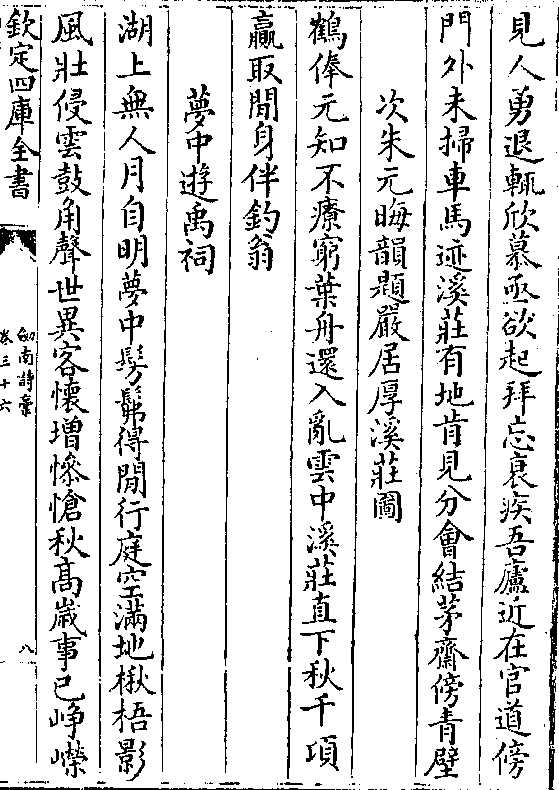 見人勇退輒欣慕亟欲起拜忘衰疾吾廬近在官道傍
門外未掃車馬迹溪莊有地肯見分會結茅齋傍青壁
次朱元晦韻題嚴居厚溪莊圖
鶴俸元知不療窮葉舟還入亂雲中溪莊直下秋千頃
贏取閒身伴釣翁
夢中遊禹祠
湖上無人月自明夢中髣髴得閒行庭空滿地楸梧影
風壯侵雲鼓角聲世異客懷增慘愴秋高歲事已崢嶸
欽定四庫全書
劍南詩稾
卷三十六
八